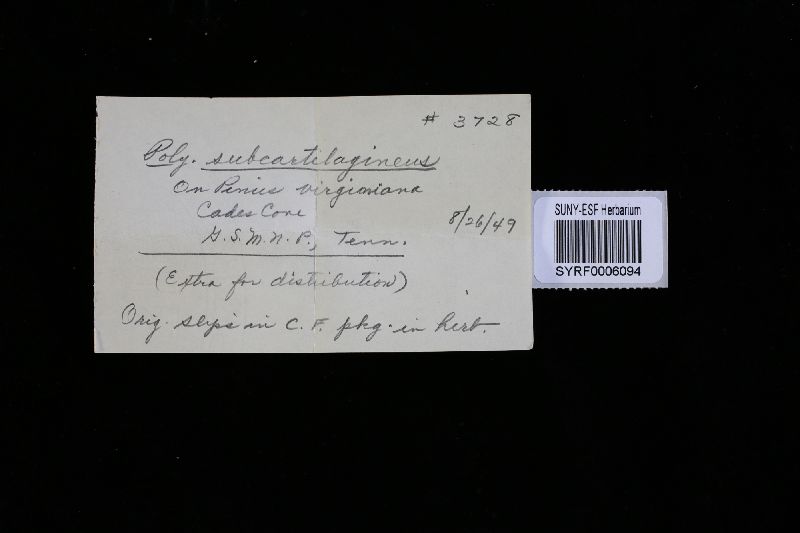 # 3728
Poly. subcartilagineus
On Pinus virginiana
Cades Cove
8/26/49
G.S.M.N.P., Tenn.
(Extra for distribution)
Orig. slips in C.F. pkg. in herb.
SUNY-ESF Herbarium
SYRF0006094